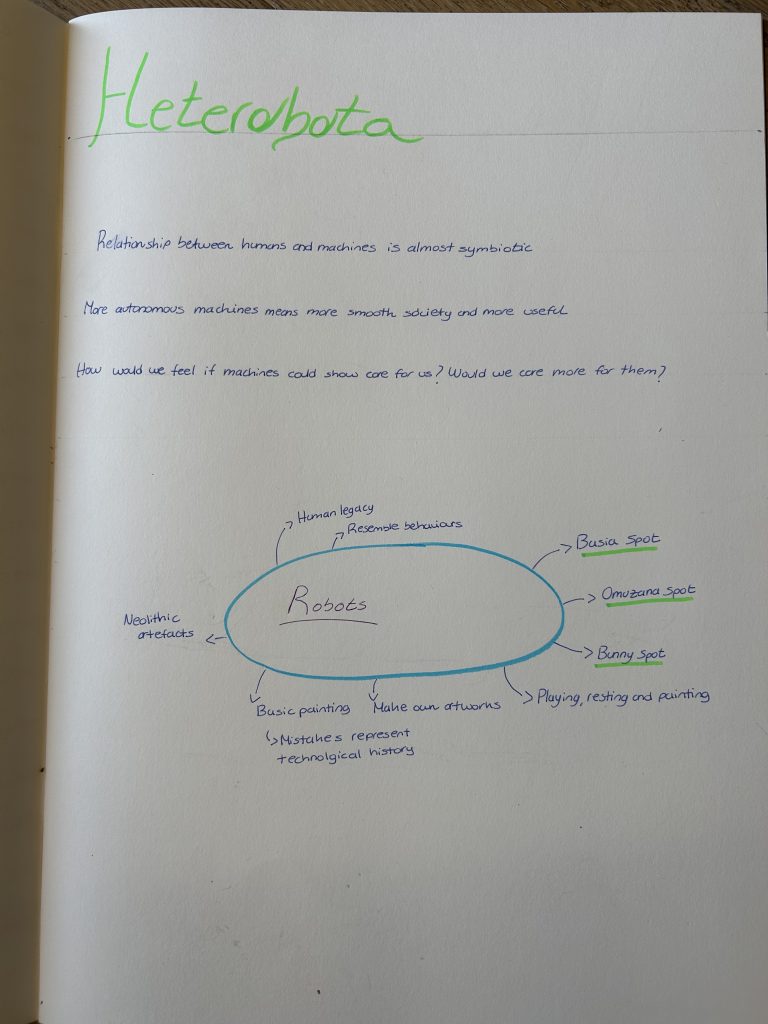 Heterobota
Relationship between humans and machines is almost symbiotic
More autonomous machines means more smooth society and more useful
How would we feel if machines could show care for us? Would we care more for them?
Human legacy
Resemble behaviours
Busia Spot
Omuzana Spot
Bunny Spot
Robots
Neolithic
artefacts
Basic painting
Mistakes represent
technolgical history
Make own artworks
Playing, resting and painting